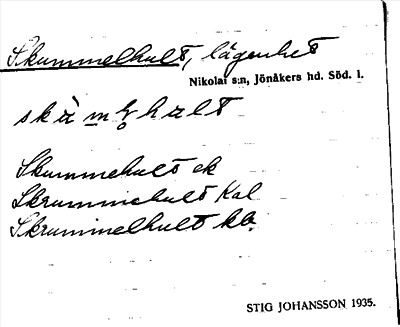 Skummelhult, lägenhet
Nikolai s:n, Jönåkers hd. Söd. l.
Skummehult ek
Skrummehult Kal
Skrummelhult kb.
STIG JOHANSSON 1935.